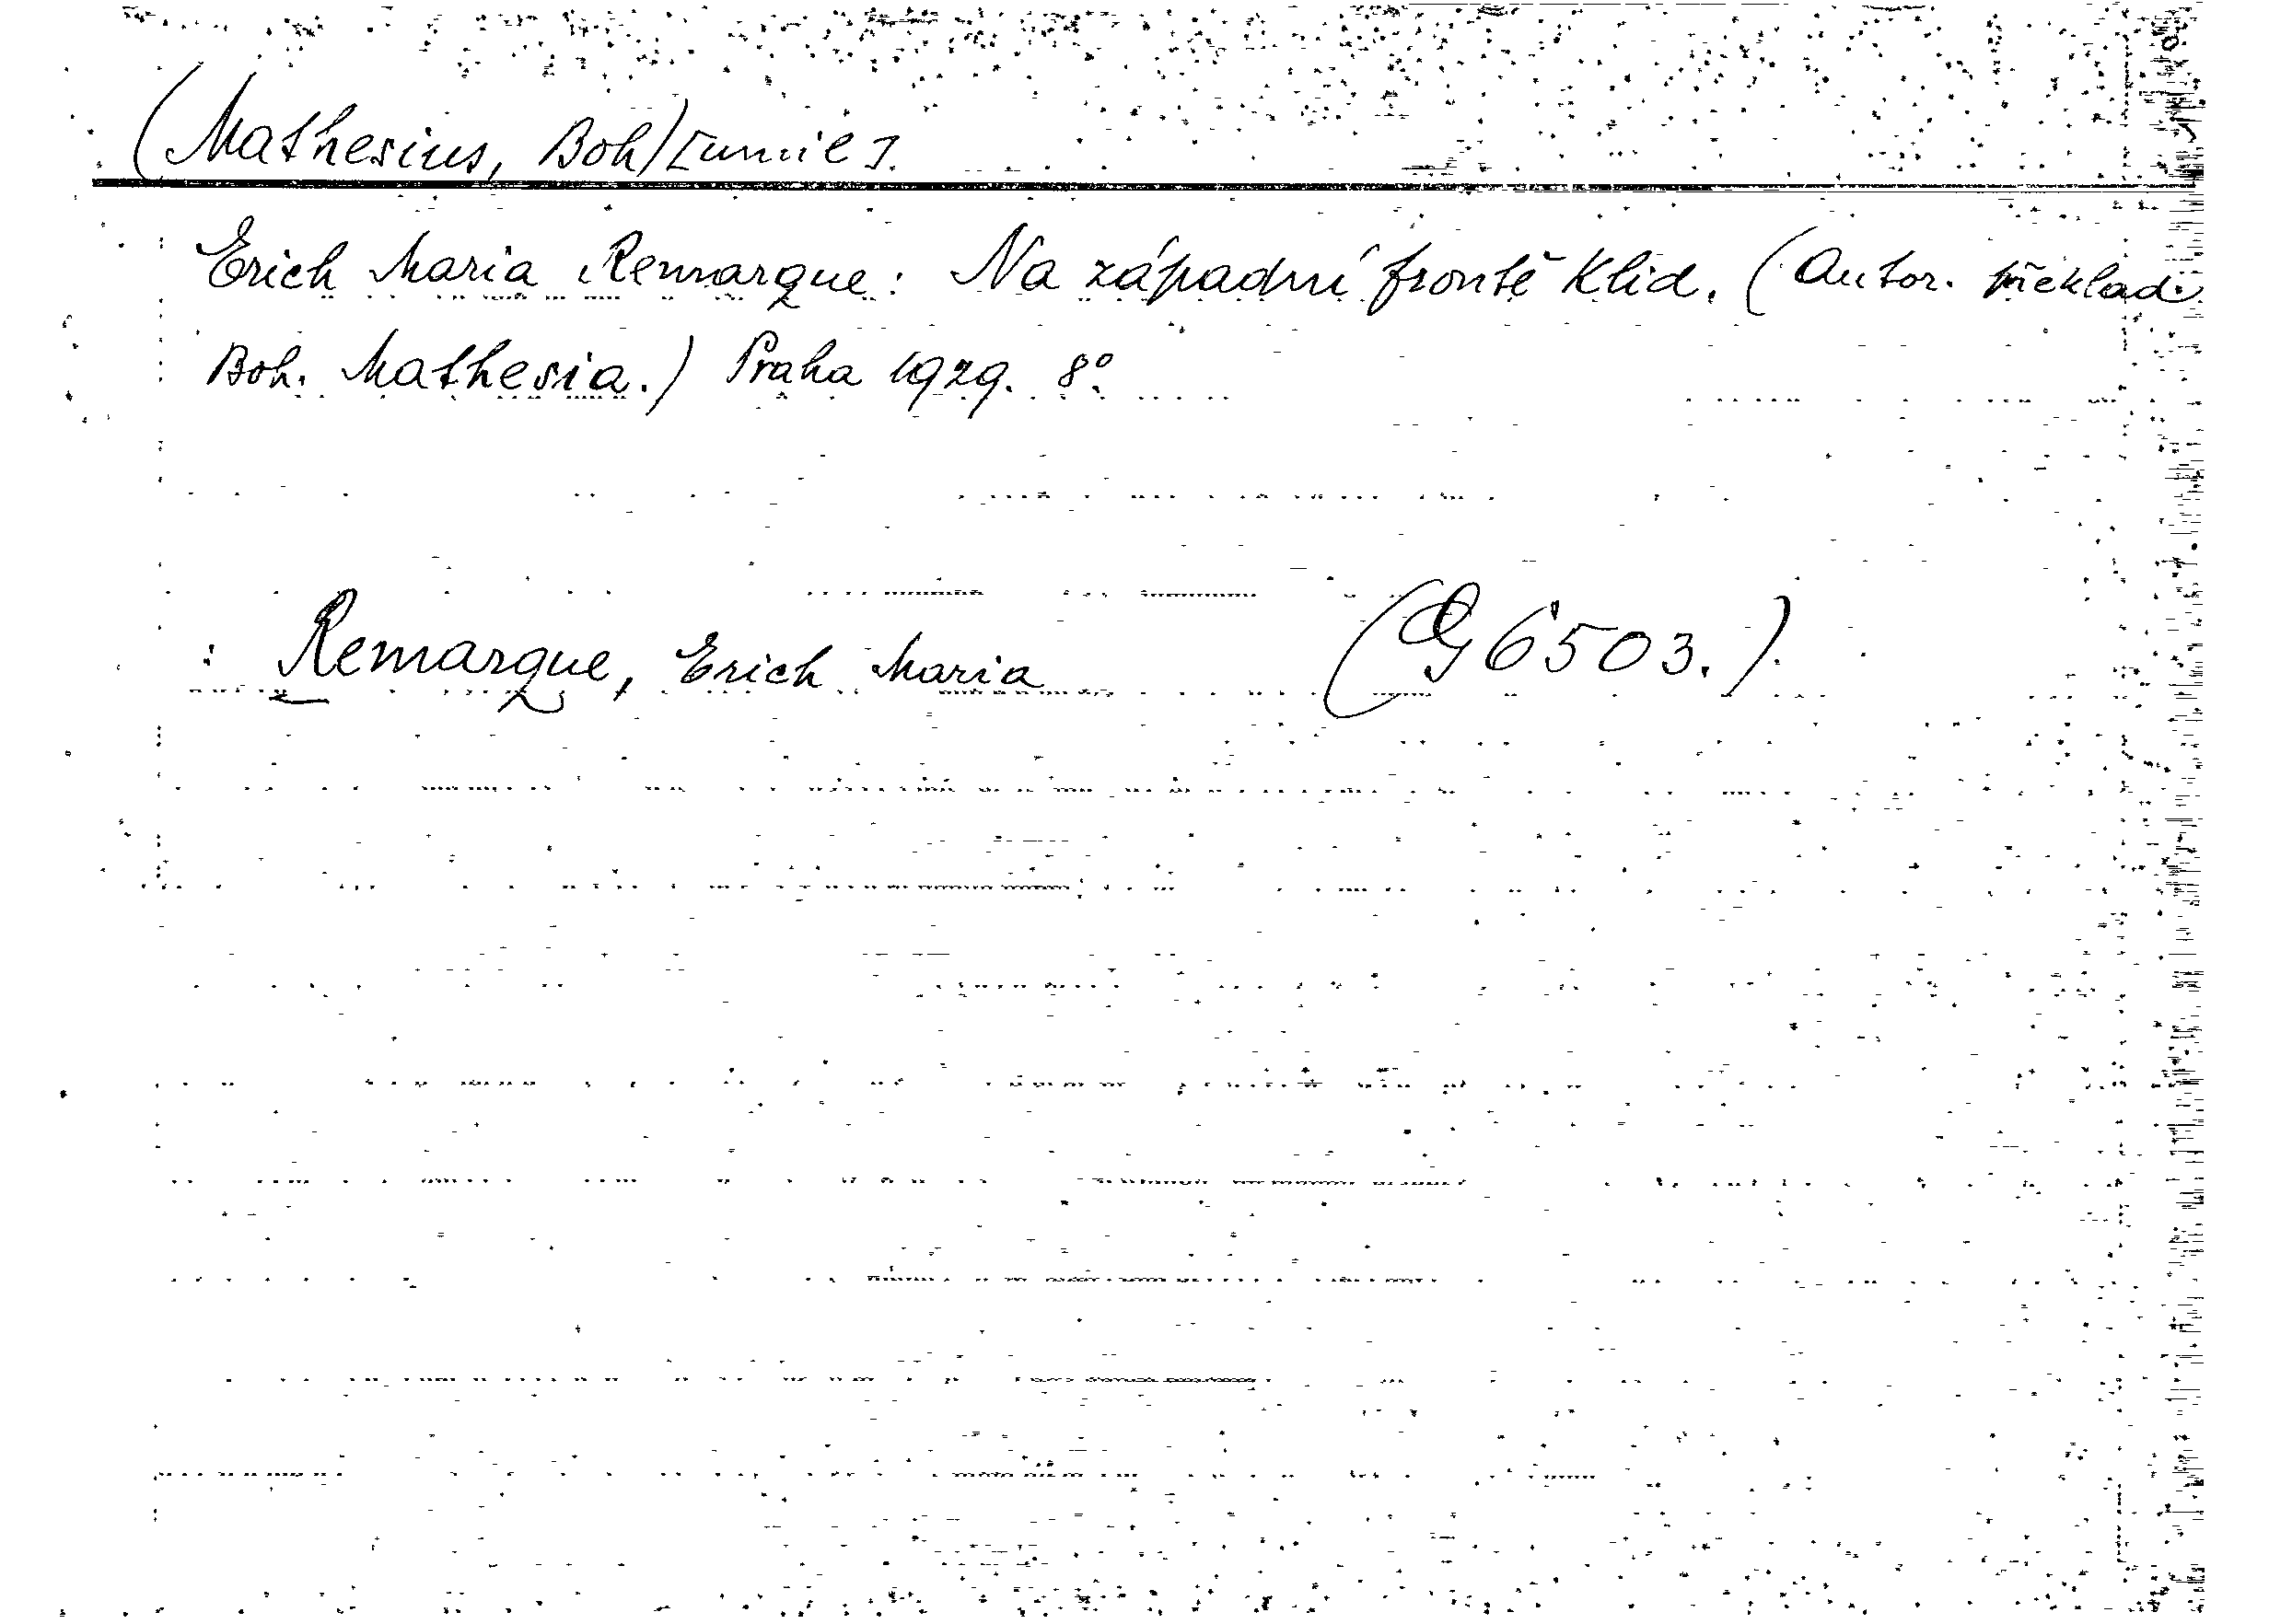 (Mathesius, Boh)[umil].
Erich Maria Remarque: Na západní frontě klid. (Autor. překlad
Boh. Mathesia.) Praha 1929. 8°.
: Remarque, Erich Maria (G 6503.)